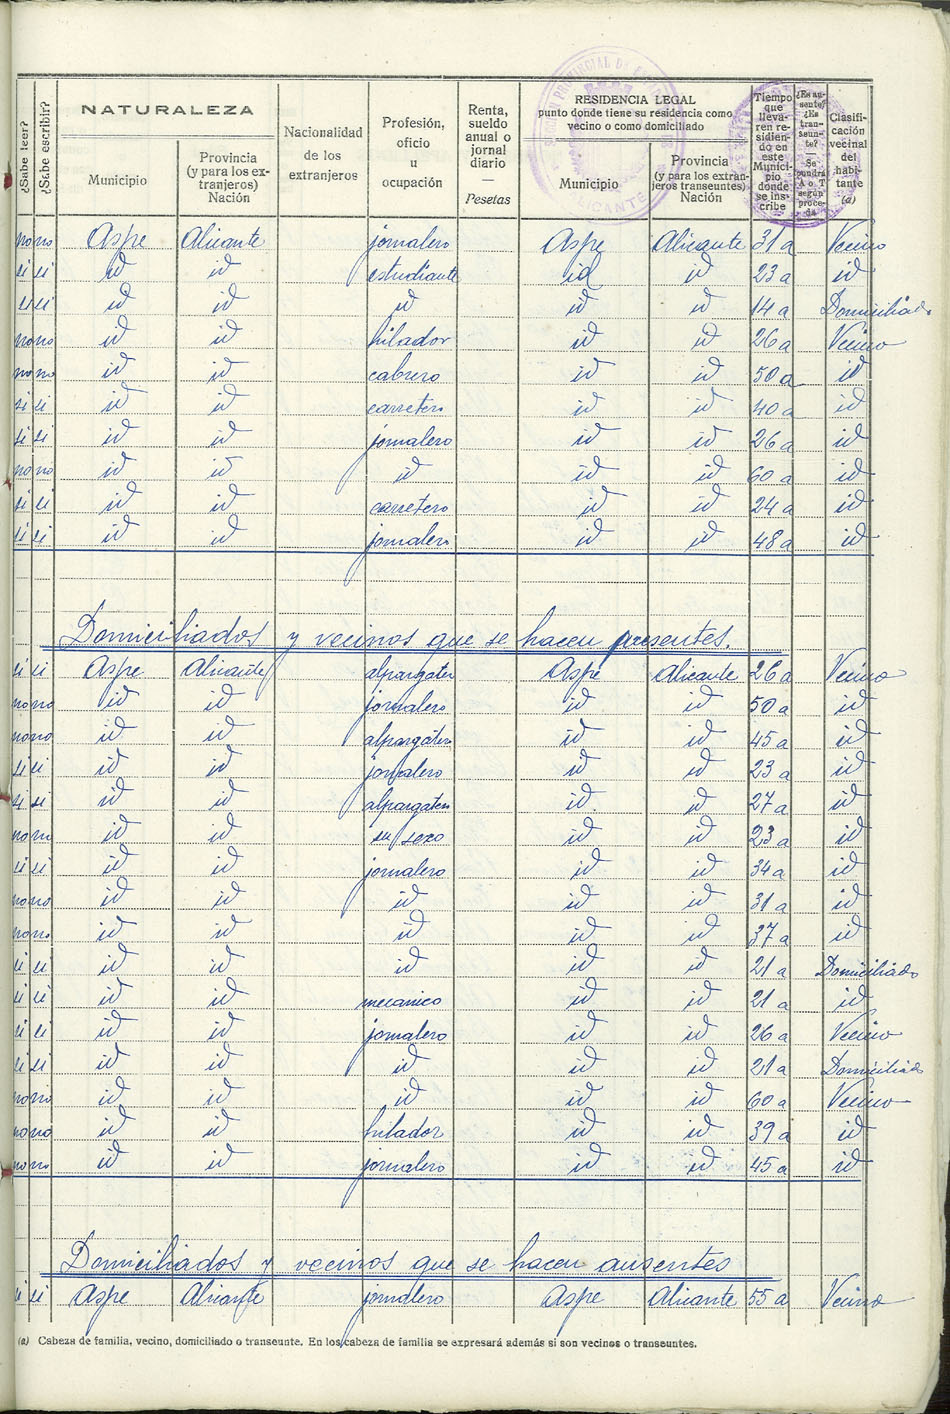 ¿Sabe leer? ¿Sabe escribir? NATURALEZA Municipio Provincia (y para los extranjeros) Nación Nacionalidad de los extranjeros Profesión, oficio u ocupación Renta, sueldo anual o jornal diario — Pesetas RESIDENCIA LEGAL punto donde tiene su residencia como vecino o como domiciliado Municipio Provincia (y para los extranjeros transeuntes) Nación Tiempo que llevaren residiendo en este Municipio donde se inscribe ¿Es ausente? ¿Es transeunte? — Se pondrá A o T según proceda Clasificación vecinal del habitante (a)
no no Aspe Alicante jornalero Aspe Alicante 31 a Vecino
si si id id estudiante id id 23 a id
si si id id id id id 14 a Domiciliado
no no id id hilador id id 26 a Vecino
no no id id cabrero id id 50 a id
si si id id carretero id id 40 a id
si si id id jornalero id id 26 a id
no no id id id id id 60 a id
si si id id carretero id id 24 a id
si si id id jornalero id id 48 a id
Domiciliados y vecinos que se hacen presentes.
si si Aspe Alicante alpargatero Aspe Alicante 26 a Vecino
no no id id jornalero id id 50 a id
no no id id alpargatero id id 45 a id
si si id id jornalero id id 23 a id
si si id id alpargatero id id 27 a id
no no id id su sexo id id 23 a id
si si id id jornalero id id 34 a id
no no id id id id id 31 a id
no no id id id id id 37 a id
si si id id id id id 21 a Domiciliado
si si id id mecanico id id 21 a id
si si id id jornalero id id 26 a Vecino
si si id id id id id 21 a Domiciliado
no no id id id id id 60 a Vecino
no no id id hilador id id 39 a id
no no id id jornalero id id 45 a id
Domiciliados y vecinos que se hacen ausentes
si si Aspe Alicante jornalero Aspe Alicante 55 a Vecino
(a) Cabeza de familia, vecino, domiciliado o transeunte. En los cabeza de familia se expresará además si son vecinos o transeuntes.